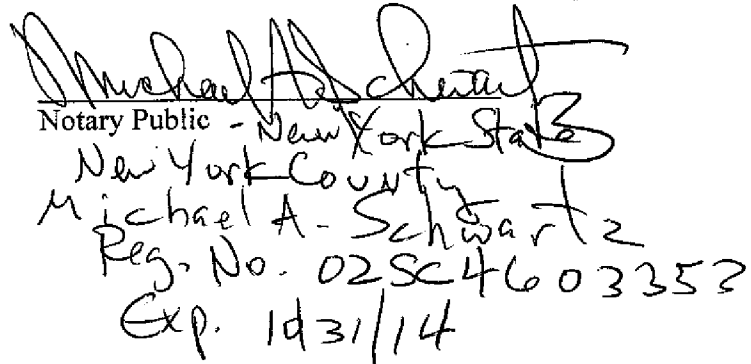 Michael A Schwartz
Notary Public - New York State
New York County
Michael A. Schwartz
Reg. No. 02SC4603353
Exp. 10/31/14